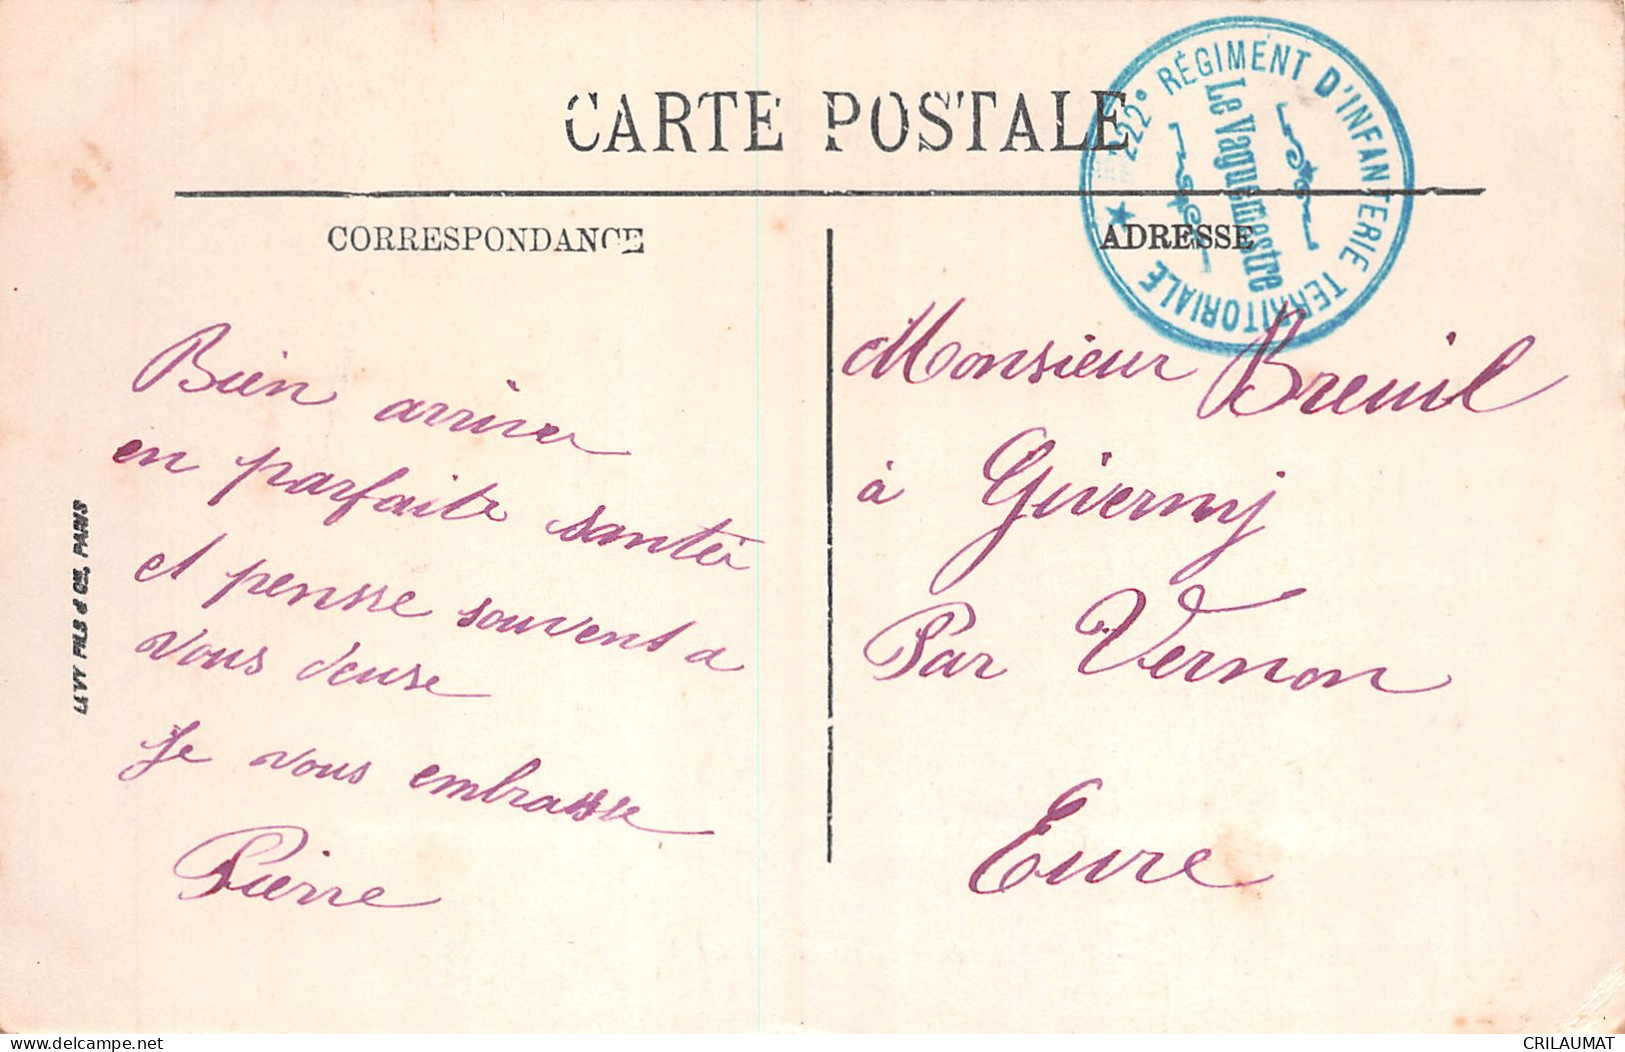 CARTE POSTALE
222e RÉGIMENT D'INFANTERIE TERRITORIALE
Le Vaguemestre
CORRESPONDANCE
ADRESSE
Bien arriver
en parfaite santée
et pensse souvent a
vous deuse
Je vous embrasse
Pierre
Monsieur Breuil
à Giverny
Par Vernon
Eure
LEVY FILS & CIE, PARIS
www.delcampe.net
CRILAUMAT